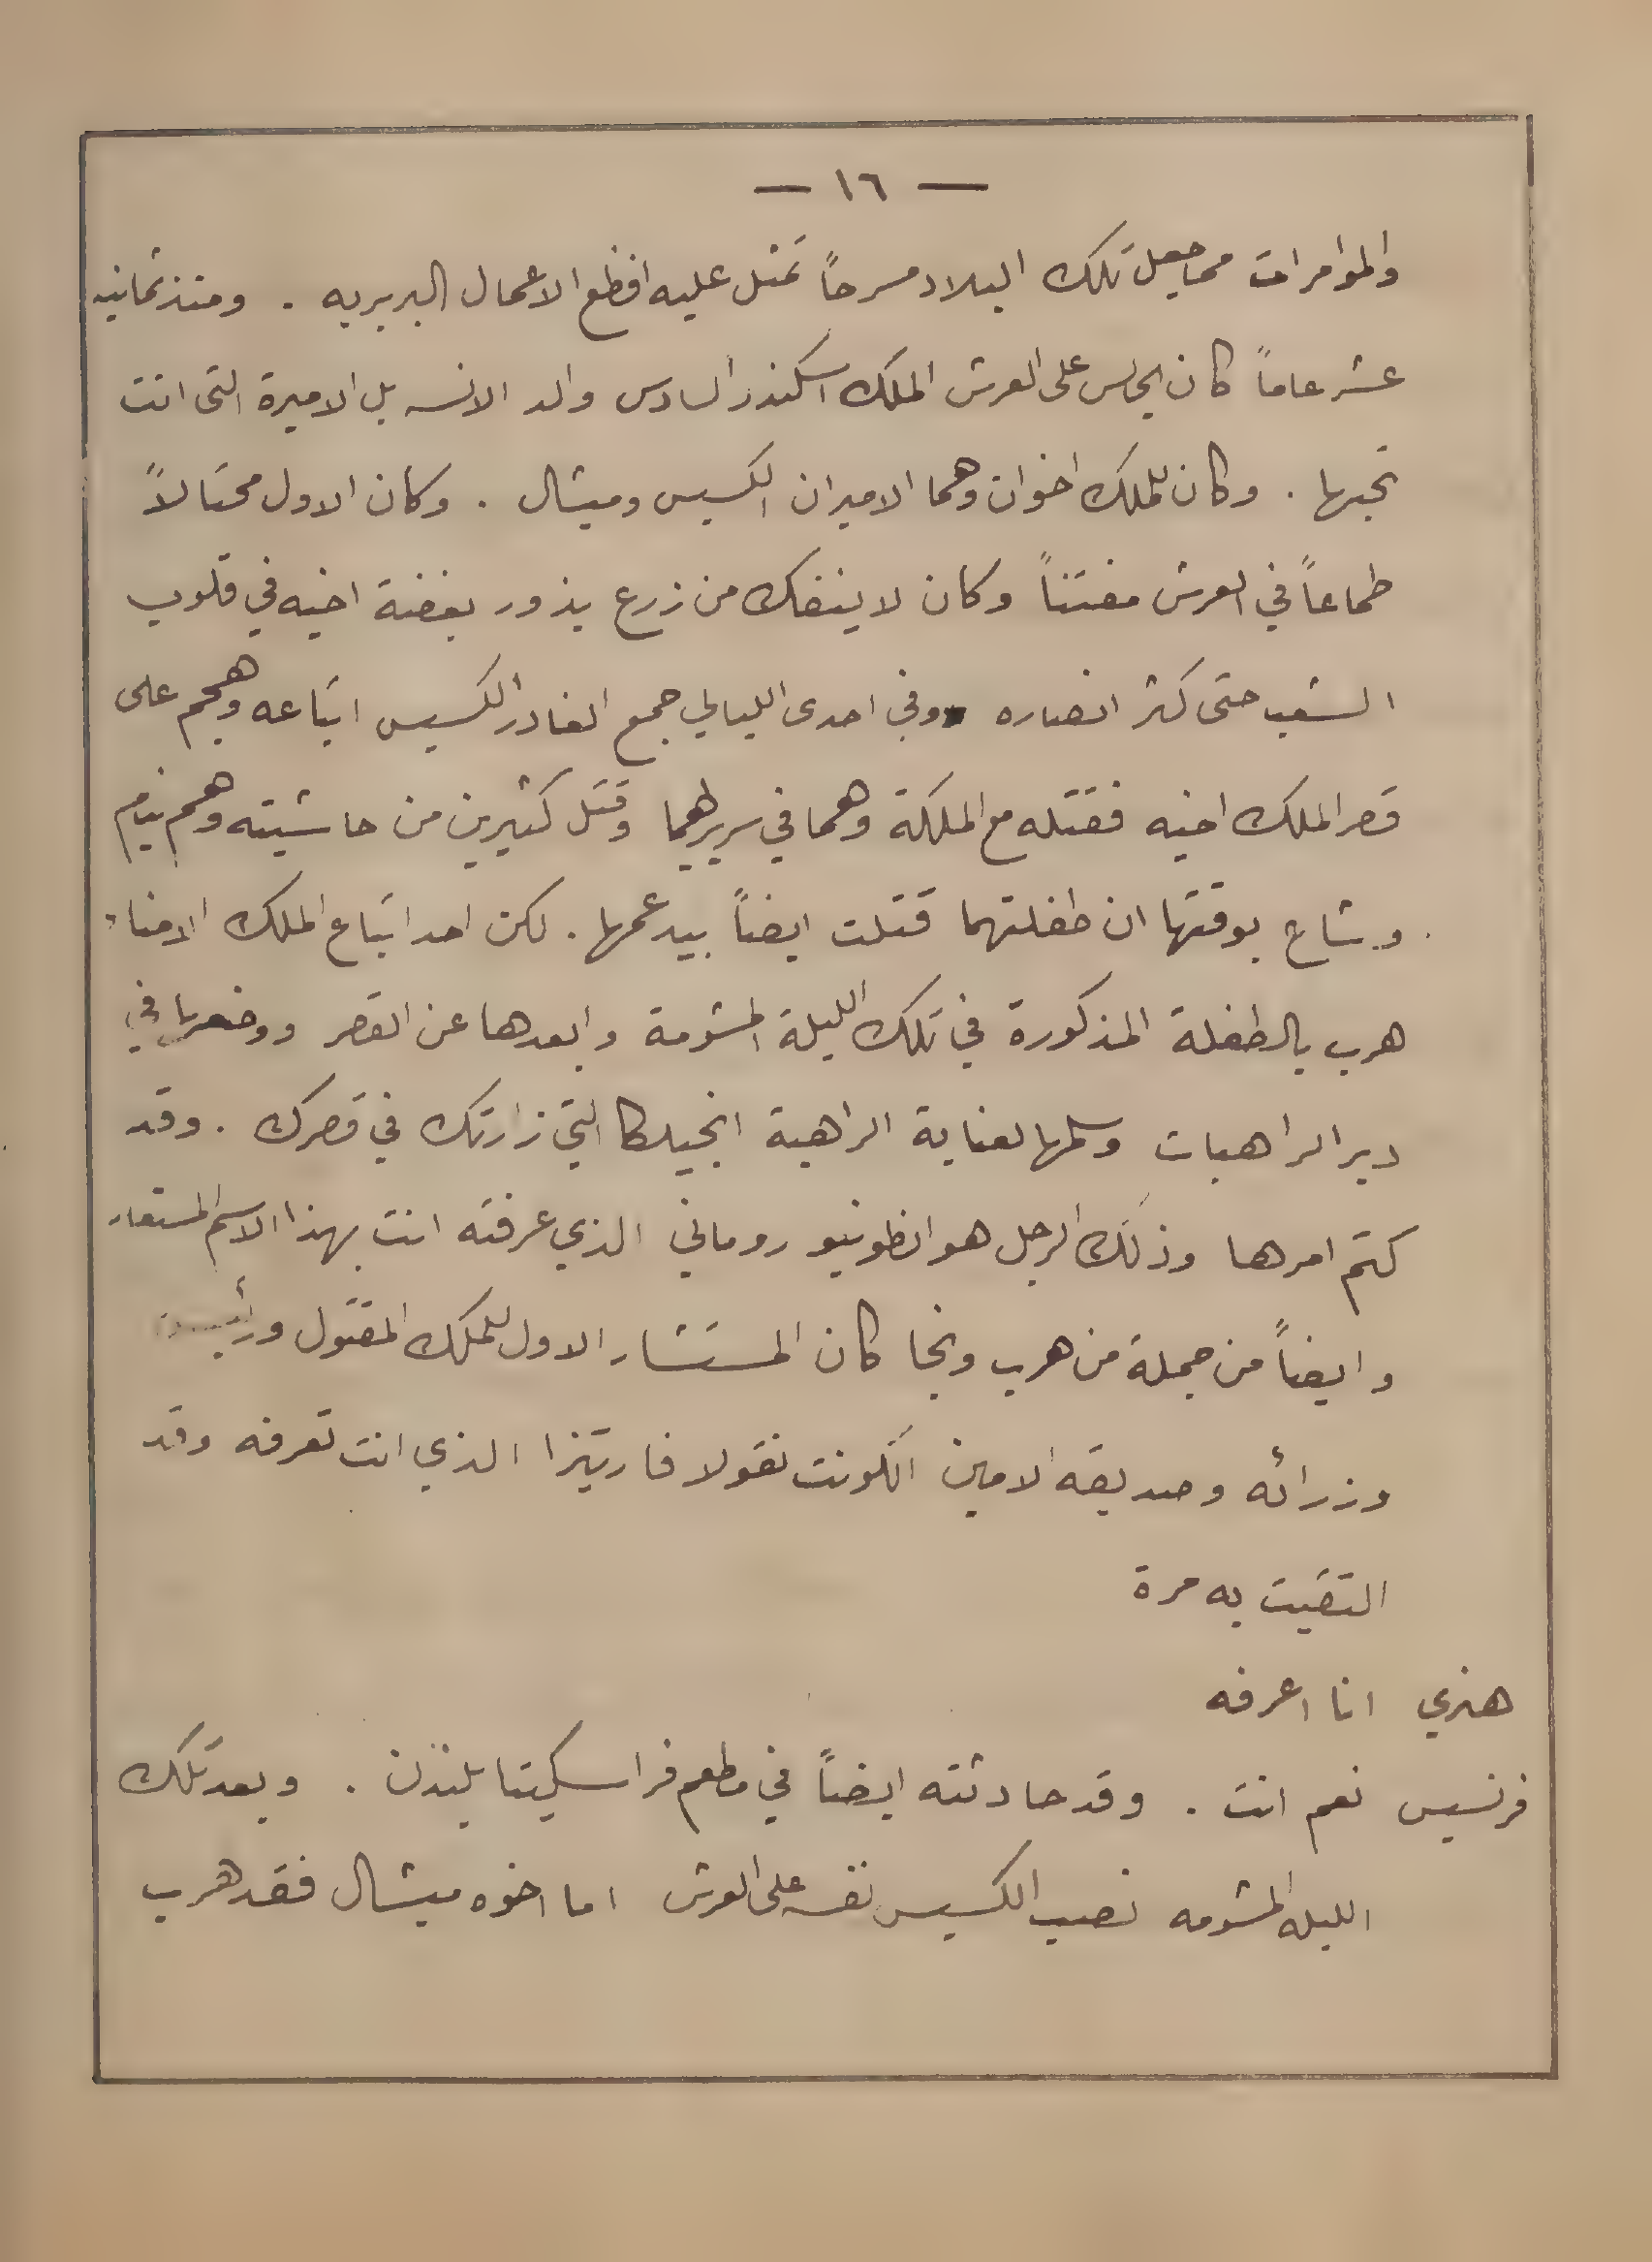 — ١٦ —
والموامرات مما جعل تلك البلاد مسرحاً تمثل عليه افظع الاعمال البربريه . ومنذ ثمانيه
عشر عاماً كان يجلس على العرش الملك اسكندر السادس والد الانسه بل الاميرة التى انت
تحبها . وكان للملك اخوان وهما الاميران الكسيس وميشال . وكان الاول محتالاً
طماعاً في العرش مفتتناً وكان لا ينفك من زرع بذور بغضة اخيه في قلوب
الشعب حتى كثر انصاره وفي احدى الليالي جمع الغادر الكسيس اتباعه وهجم على
قصر الملك اخيه فقتله مع الملكة وهما في سريرهما وقتل كثيرين من حاشيته وهم نيام
. وشاع بوقتها ان طفلتهما قتلت ايضاً بيد عمها . لكن احد اتباع الملك الامناء
هرب بالطفلة المذكورة في تلك الليلة المشومة وابعدها عن القصر ووضعها في
دير الراهبات وسلمها لعناية الراهبة انجيلكا التي زارتك في قصرك . وقد
كتم امرها وذلك الرجل هو انطونيو روماني الذي عرفته انت بهذا الاسم المستعار
وايضاً من جملة من هرب ونجا كان المستشار الاول للملك المقتول ورئيس
وزرائه وصديقه الامين الكونت نقولا فاريتزا الذي انت تعرفه وقد
التقيت به مرة
هنري انا اعرفه
فرنسيس نعم انت . وقد حادثته ايضاً في مطعم فراسكيتا بلندن . وبعد تلك
الليله المشومه نصب الكسيس نفسه على العرش اما اخوه ميشال فقد هرب